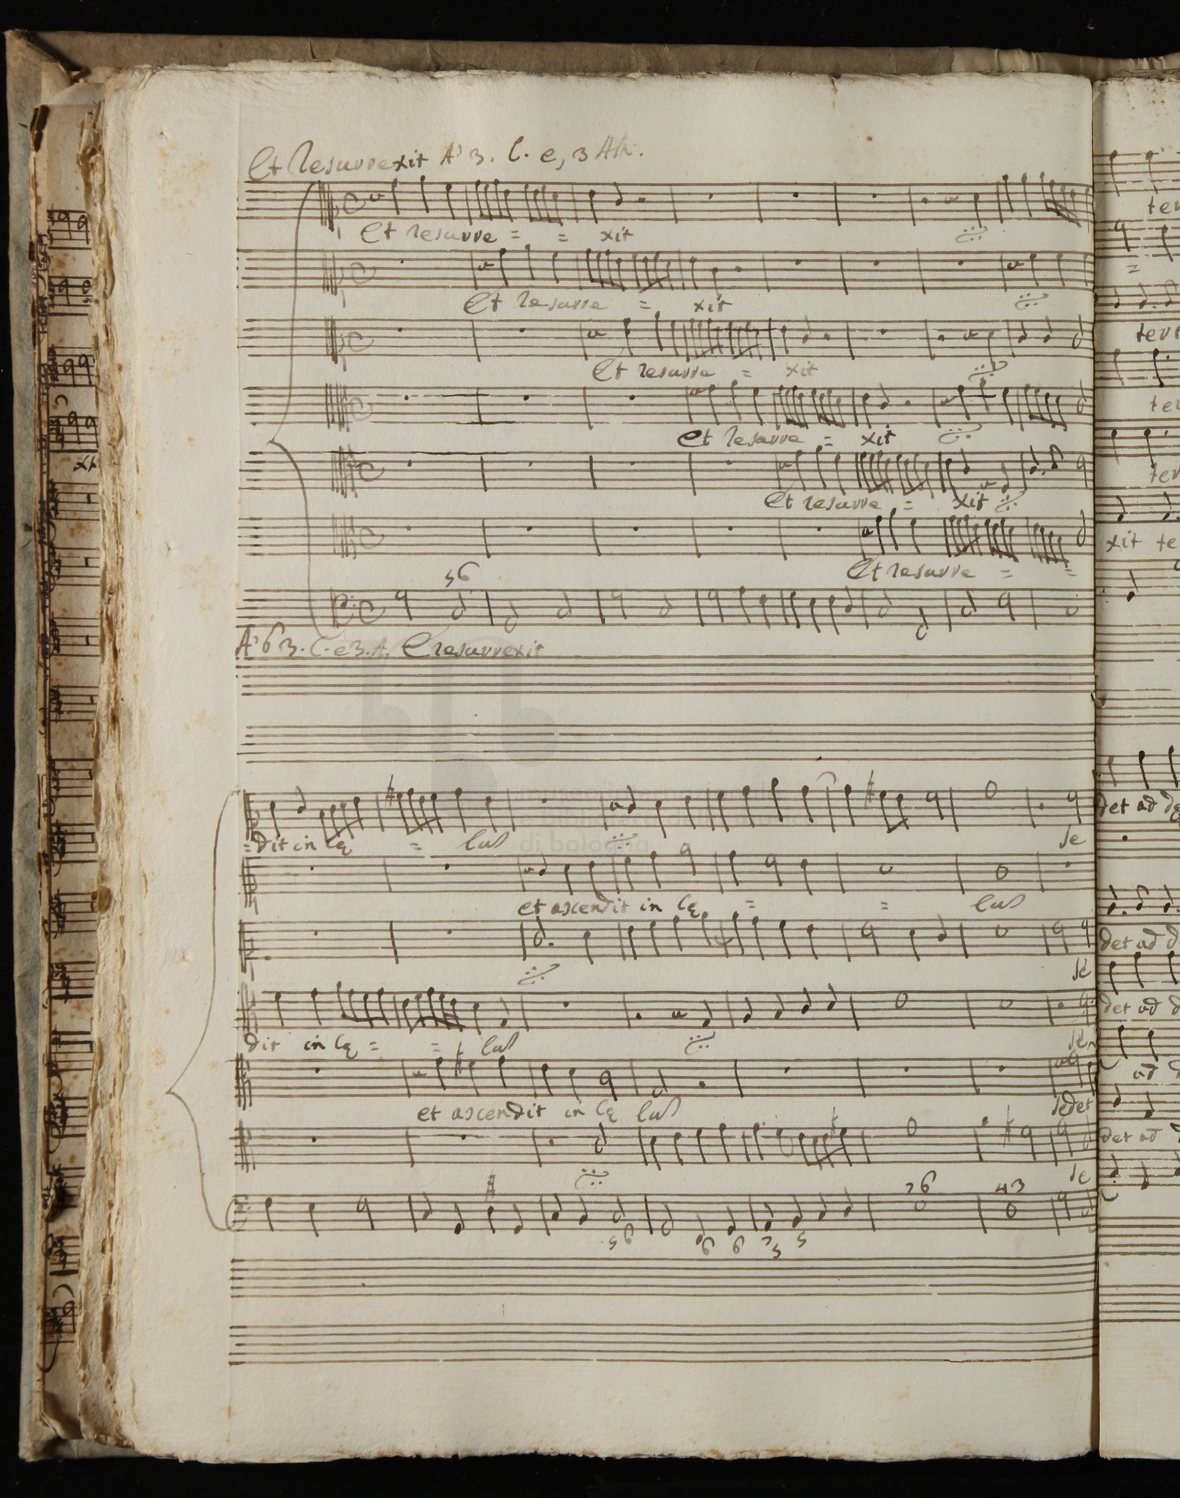 Et Resurrexit A' 3. C. e, 3 Alt.
Et resurre = = xit
Et resurre = xit
Et resurre = xit
Et resurre = xit
Et resurre = xit
Et resurre = =
56
A' 6 3. C. e 3. A. E resurrexit
= dit in cę = lus
se
et ascendit in cę = = lus
se
dit in cę = = lus
et ascendit in cę lus
sedet
se
76
43
56
6 6
di bologna
ter
xit te
det ad
det ad
det ad
ad
det ad